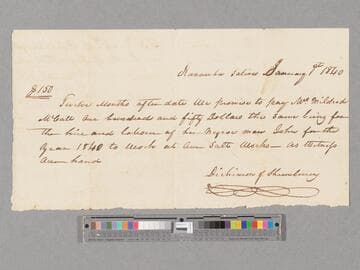 Kanawha Salines January 9th 1840
$150
Twelve Months after date We promise to pay Mrs Mildred
McCall One hundred and fifty Dollars this same being for
the hire and labour of her Negroe man John for the
year 1840 to Work at our Salt Works – As Witness
our hand
Dickinson & Shrewsbury